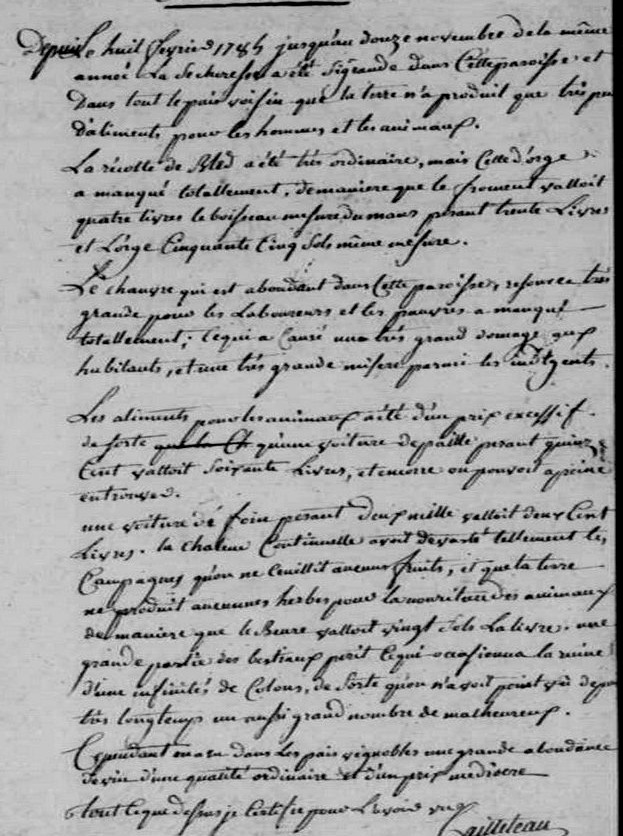 Depuis le huit fevrie 1785 jusqu'au douze novembre de la même
année la secheresse a été si grande dans cette paroisse et
dans tout le païs voisin que la terre n'a produit que très peu
d'aliments pour les hommes et les animaux.
La récolte de Bled a été très ordinaire, mais celle d'orge
a manqué totallement, de maniere que le froment valloit
quatre livres le boisseau mesure du mans pesant trente Livres
et L'orge Cinquante Cinq sols même mesure.
Le chanvre qui est abondant dans Cette paroisse, ressource très
grande pour les Laboureurs et les pauvres a manqué
totallement ; ce qui a Causé un très grand domage aux
habitants, et une très grande misere parmi les indigents.
Les aliments pour les animaux a été d'un prix excessif
de sorte que la qu'une voiture de paille pesant quinze
Cent valloit soixante Livres, et encorre on pouvoit a peine
en trouver.
une voiture de foin pesant deux mille valloit deux Cent
Livres. la chaleur Continuelle avoit devasté tellement les
Campagnes qu'on ne ceuillit aucuns fruits, et que la terre
ne produit aucunnes herbes pour la nouriture des animaux
de maniere que le Beure valloit vingt sols La livre. une
grande partie des bestiaux perit ce qui occasionna la ruine
d'une infinités de Colons, de sorte qu'on n'avoit point vû depuis
très longtemps un aussi grand nombre de malheureux.
Cependant on a eu dans les païs vignobles une grande abondance
de vin d'une qualité ordinaire et d'un prix mediocre
tout ce que dessus je Certifie pour L'avoir vu
Cailleteau